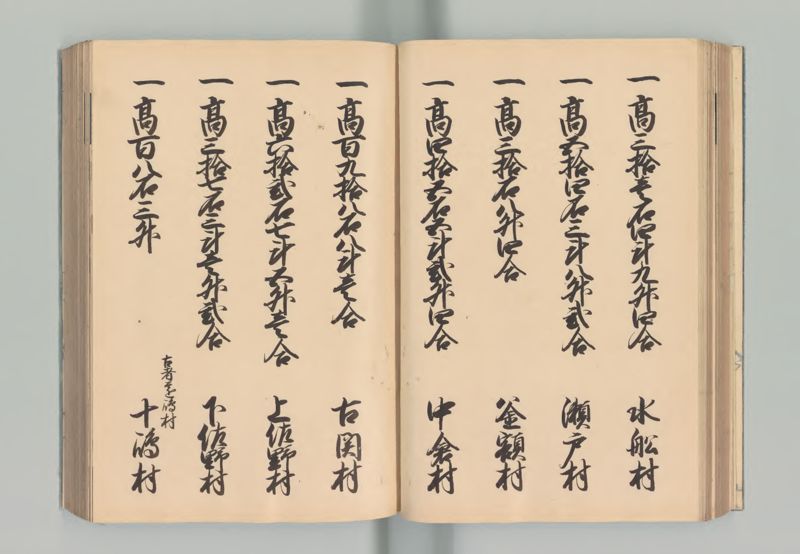 一高三拾壱石四斗九升四合 水船村
一高五拾四石三斗八升弐合 瀬戸村
一高三拾石八升四合 釜額村
一高四拾五石五斗弐升四合 中倉村
一高百九拾八石八斗壱合 古関村
一高六拾弐石七斗五升壱合 上佐野村
一高三拾七石三斗壱升弐合 下佐野村
古者遠嶋村
一高百八石三升 十嶋村